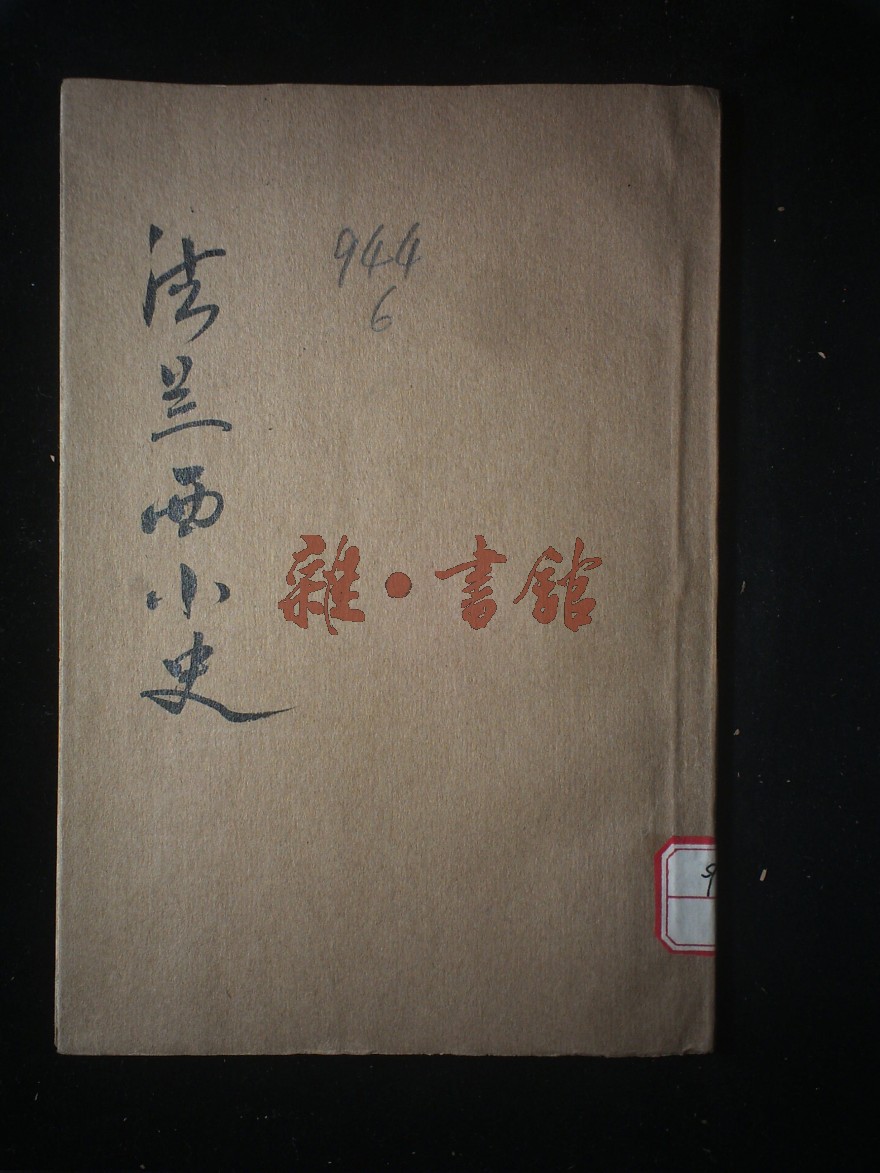 法兰西小史
944
6
雜·書館
9